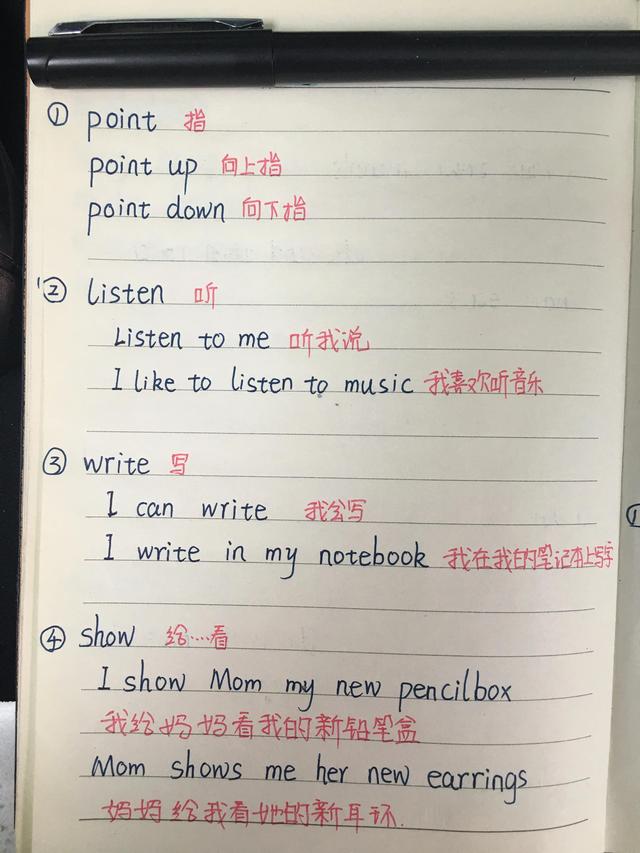 ① point 指
point up 向上指
point down 向下指
② Listen 听
Listen to me 听我说
I like to listen to music 我喜欢听音乐
③ write 写
I can write 我会写
I write in my notebook 我在我的笔记本上写字
④ show 给...看
I show Mom my new pencilbox
我给妈妈看我的新铅笔盒
Mom shows me her new earrings
妈妈给我看她的新耳环.
①